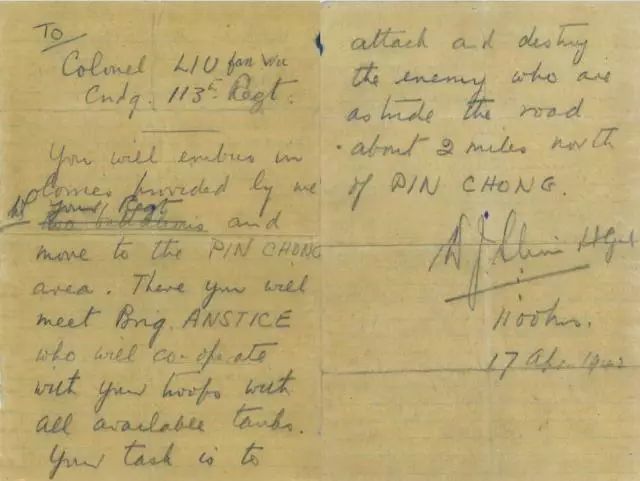 To
Colonel LIU fan wu
Cmdg. 113th Regt.
You will embus in
provided by me
your Regt
and
move to the PIN CHONG
area. There you will
meet Brig. ANSTICE
who will co-operate
with your troops with
all available tanks.
Your task is to
attack and destroy
the enemy who are
astride the road
about 2 miles north
of PIN CHONG.
W J Slim Lt Gnl
1100 hrs.
17 Apr. 1942